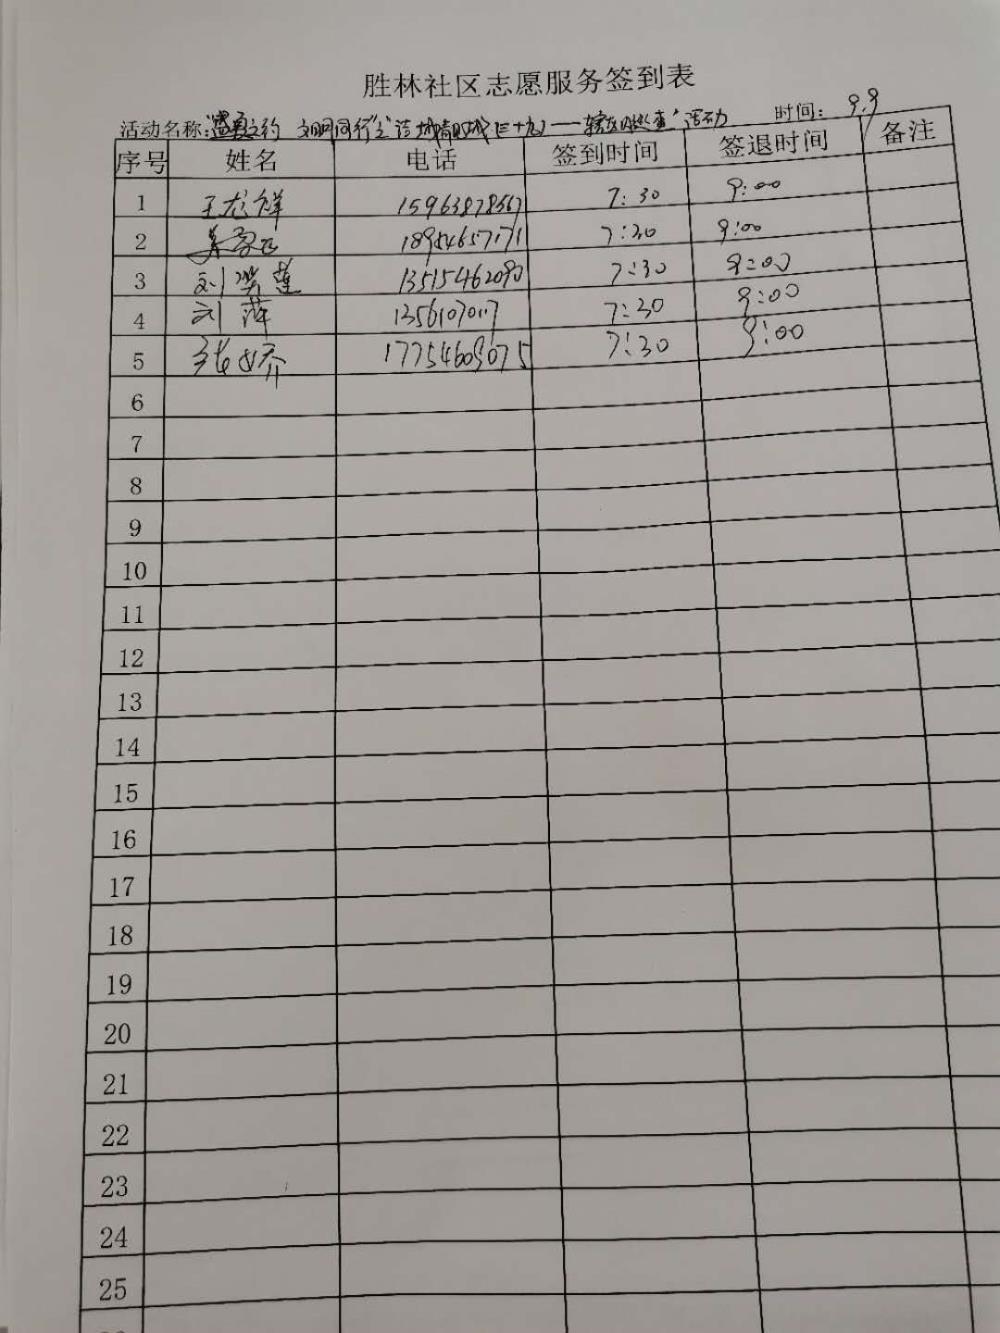 胜林社区志愿服务签到表
活动名称: 温馨之约 文明同行 时间: 9.9
序号 姓名 电话 签到时间 签退时间 备注
1 王龙祥 15963878567 7:30 9:00
2 18954657171 7:30 9:00
3 刘洪莲 13515462090 7:30 9:00
4 刘萍 13561070117 7:30 9:00
5 17754609075 7:30 9:00
6
7
8
9
10
11
12
13
14
15
16
17
18
19
20
21
22
23
24
25